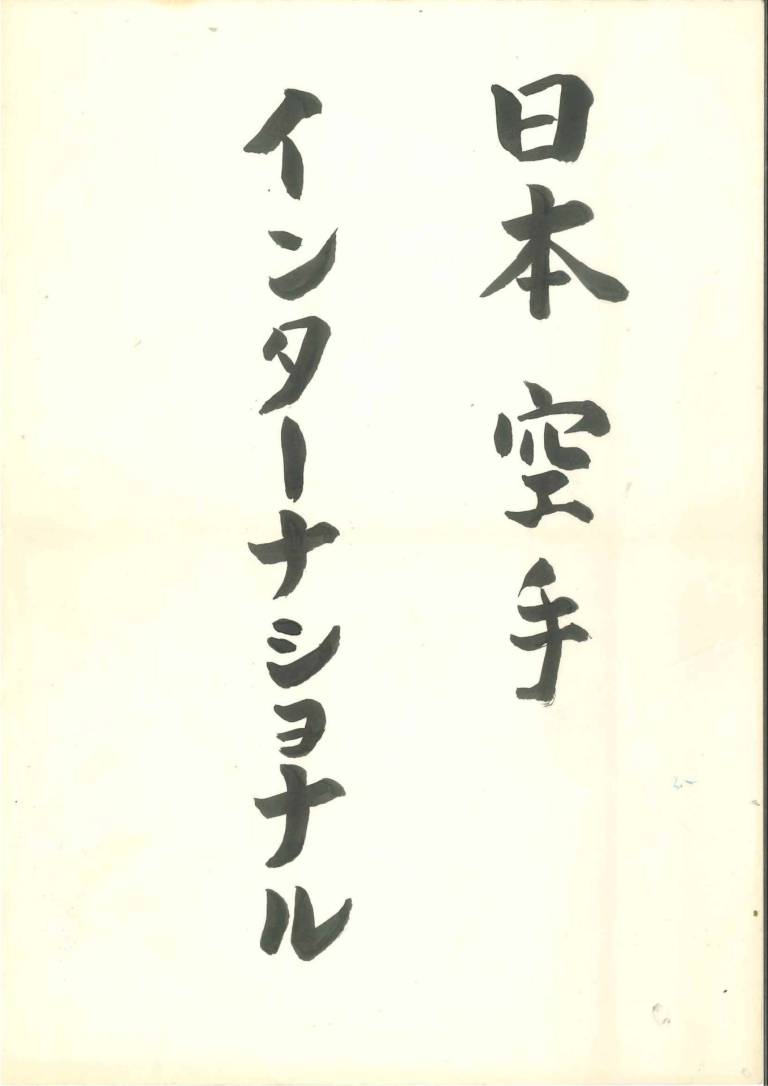 日本空手
インターナショナル